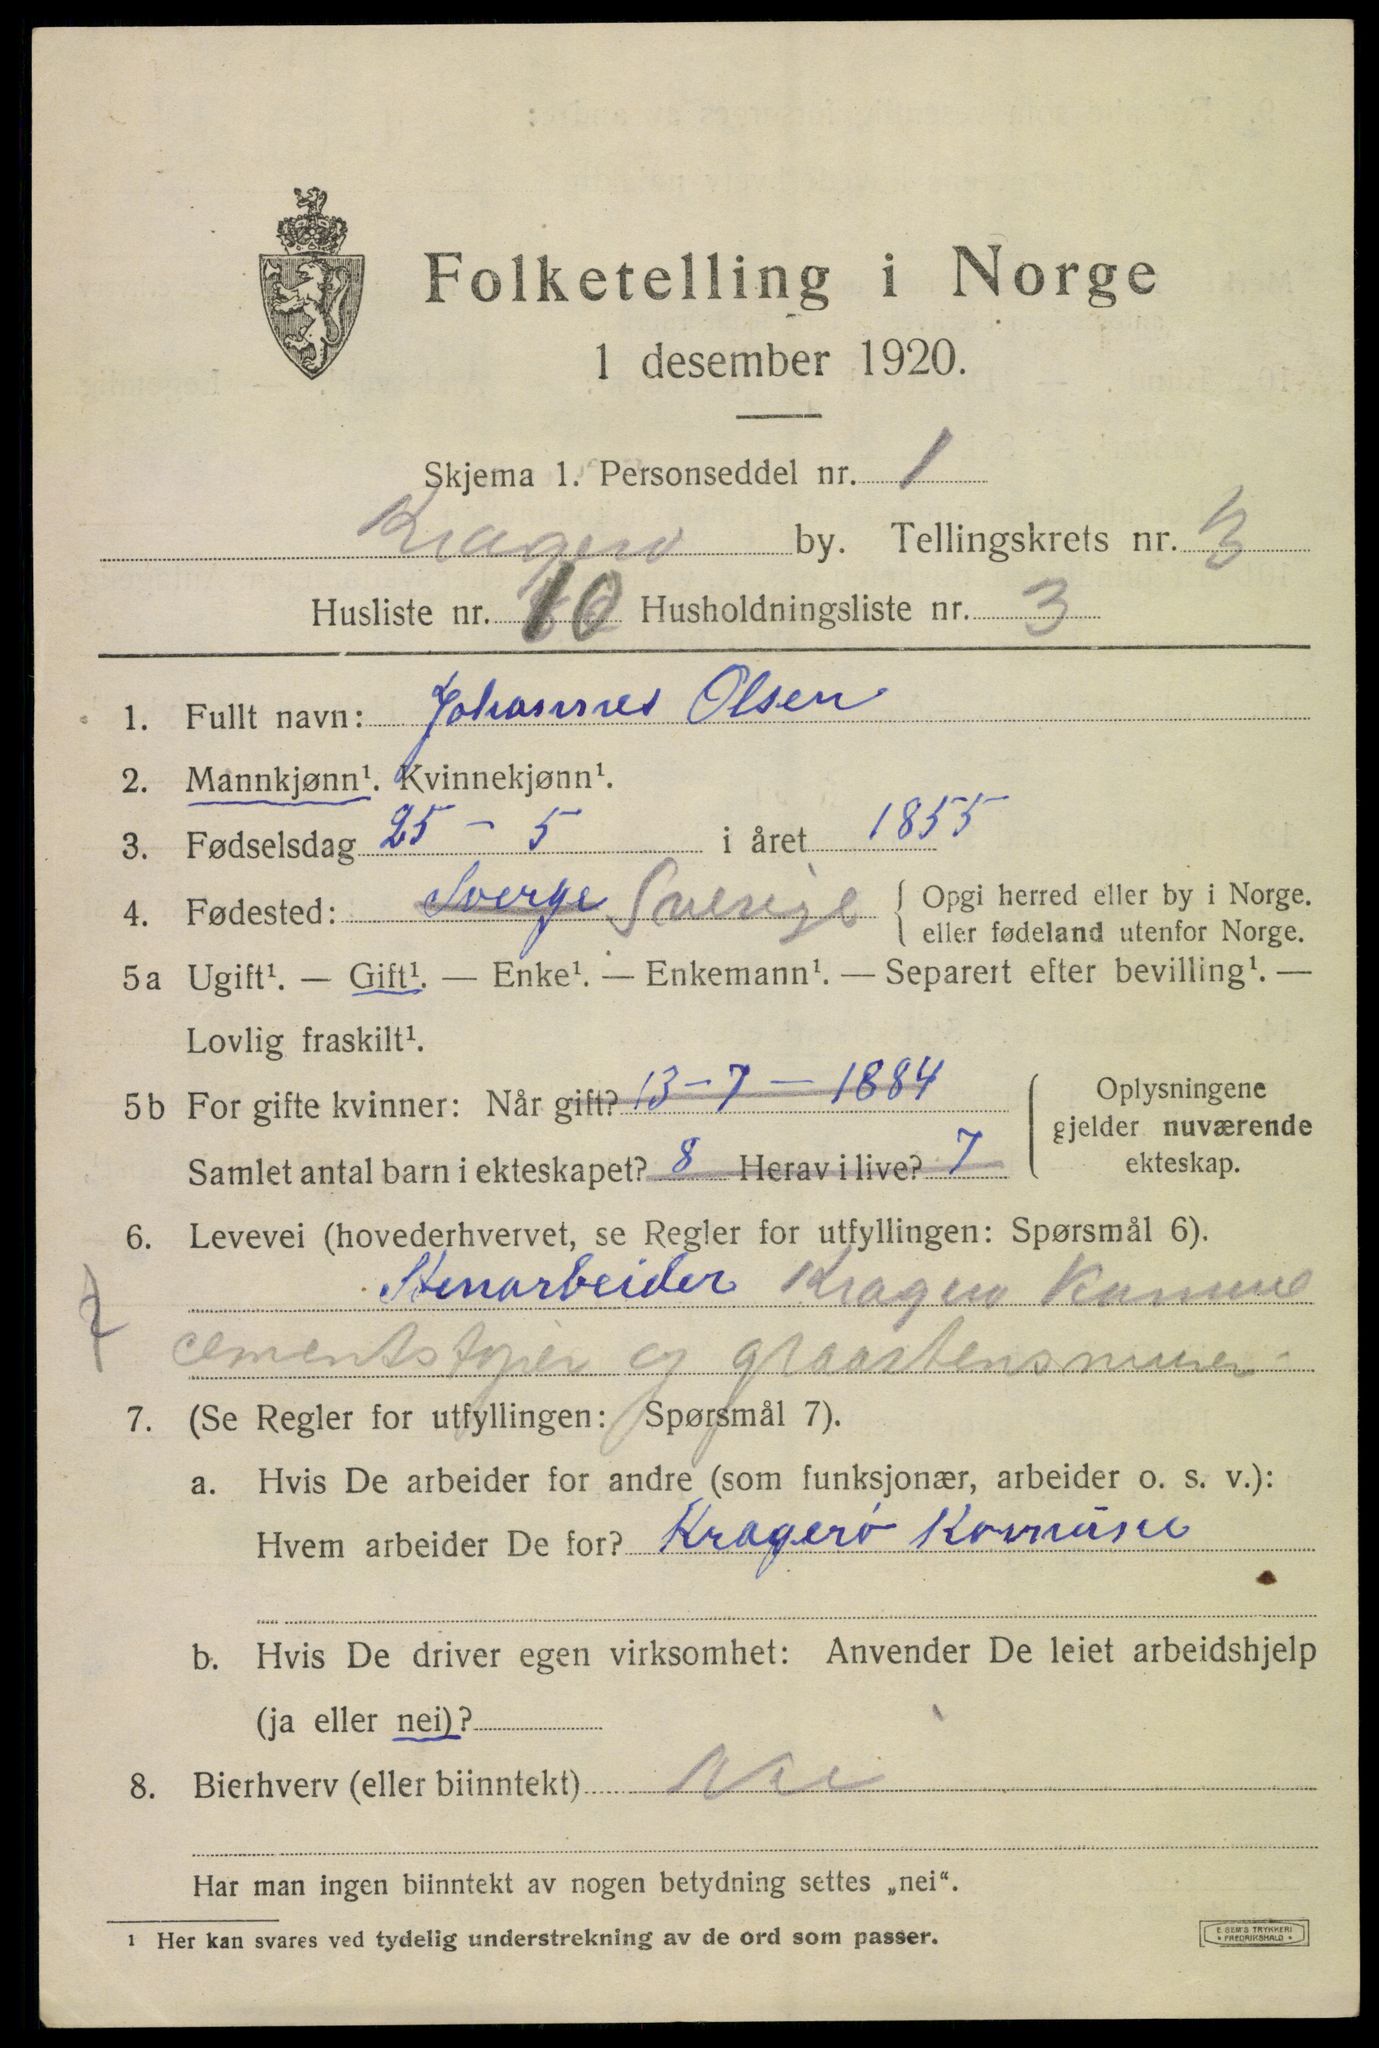 Folketelling i Norge
1 desember 1920.
Skjema 1. Personseddel nr. 1
Kragerø by. Tellingskrets nr. 3
Husliste nr. 10 Husholdningsliste nr. 3
1. Fullt navn: Johannes Olsen
2. Mannkjønn¹. Kvinnekjønn¹.
3. Fødselsdag 25 - 5 i året 1855
4. Fødested: Sverge Sverige { Opgi herred eller by i Norge.
eller fødeland utenfor Norge.
5a Ugift¹. — Gift¹. — Enke¹. — Enkemann¹. — Separert efter bevilling¹. —
Lovlig fraskilt¹.
5b For gifte kvinner: Når gift? 13 - 7 — 1884
Samlet antal barn i ekteskapet? 8 Herav i live? 7
Oplysningene
gjelder nuværende
ekteskap.
6. Levevei (hovederhvervet, se Regler for utfyllingen: Spørsmål 6).
Stenarbeider Kragerø Komune
cementstøper og graastensmurer
7. (Se Regler for utfyllingen: Spørsmål 7).
a. Hvis De arbeider for andre (som funksjonær, arbeider o. s. v.):
Hvem arbeider De for? Kragerø Komune
b. Hvis De driver egen virksomhet: Anvender De leiet arbeidshjelp
(ja eller nei)?
8. Bierhverv (eller biinntekt) Nei
Har man ingen biinntekt av nogen betydning settes „nei“.
1 Her kan svares ved tydelig understrekning av de ord som passer.
E SEM'S TRYKKERI
• FREDRIKSHALD •